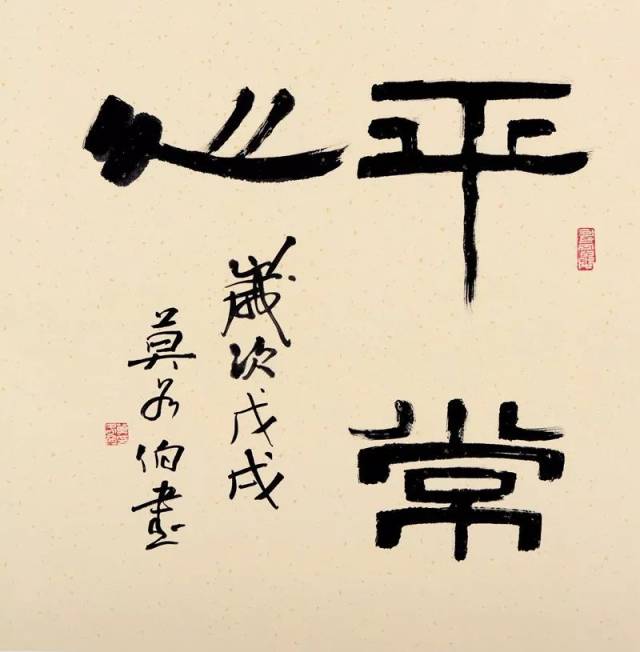 平常
心
歲次戊戌
莫各伯畫